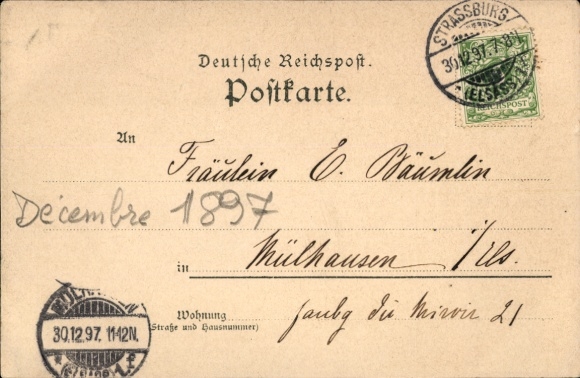 STRASSBURG
30.12.97. 7-8N.
* (ELSASS)
REICHSPOST
Deutsche Reichspost.
Postkarte.
An
Fräulein E. Bäumlin
Décembre 1897
in Mülhausen i/Els.
Wohnung
(Straße und Hausnummer)
faubg du Miroir 21
30.12.97. 11-12N.